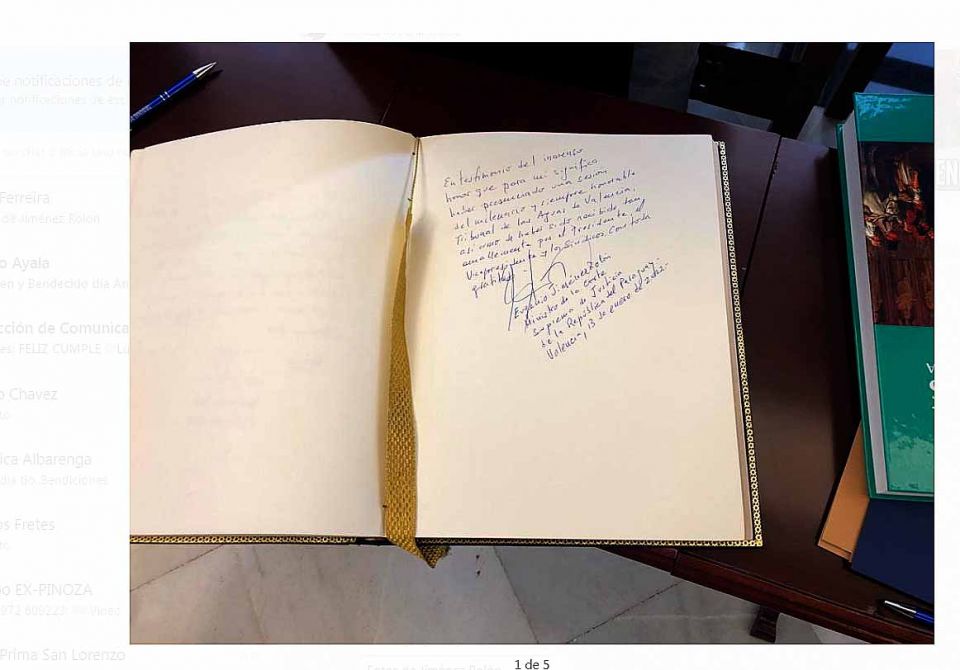 notificaciones de
Ferreira
de Jiménez Rolon
o Ayala
en y Bendecido día An
cción de Comunica
es: FELIZ CUMPLE
o Chavez
ica Albarenga
dia tio Bendiciones
os Fretes
o EX-PINOZA
972 609223:
Prima San Lorenzo
En testimonio del inmenso
honor que para mí significa
haber presenciado una sesión
del milenario y siempre honorable
Tribunal de las Aguas de Valencia,
así como de haber sido recibido tan
amablemente por el Presidente, el
Vicepresidente y los Síndicos. Con toda
gratitud.
Eugenio Jiménez Rolón
Ministro de la Corte
Suprema de Justicia
de la República del Paraguay
Valencia, 13 de enero de
EN
1 de 5